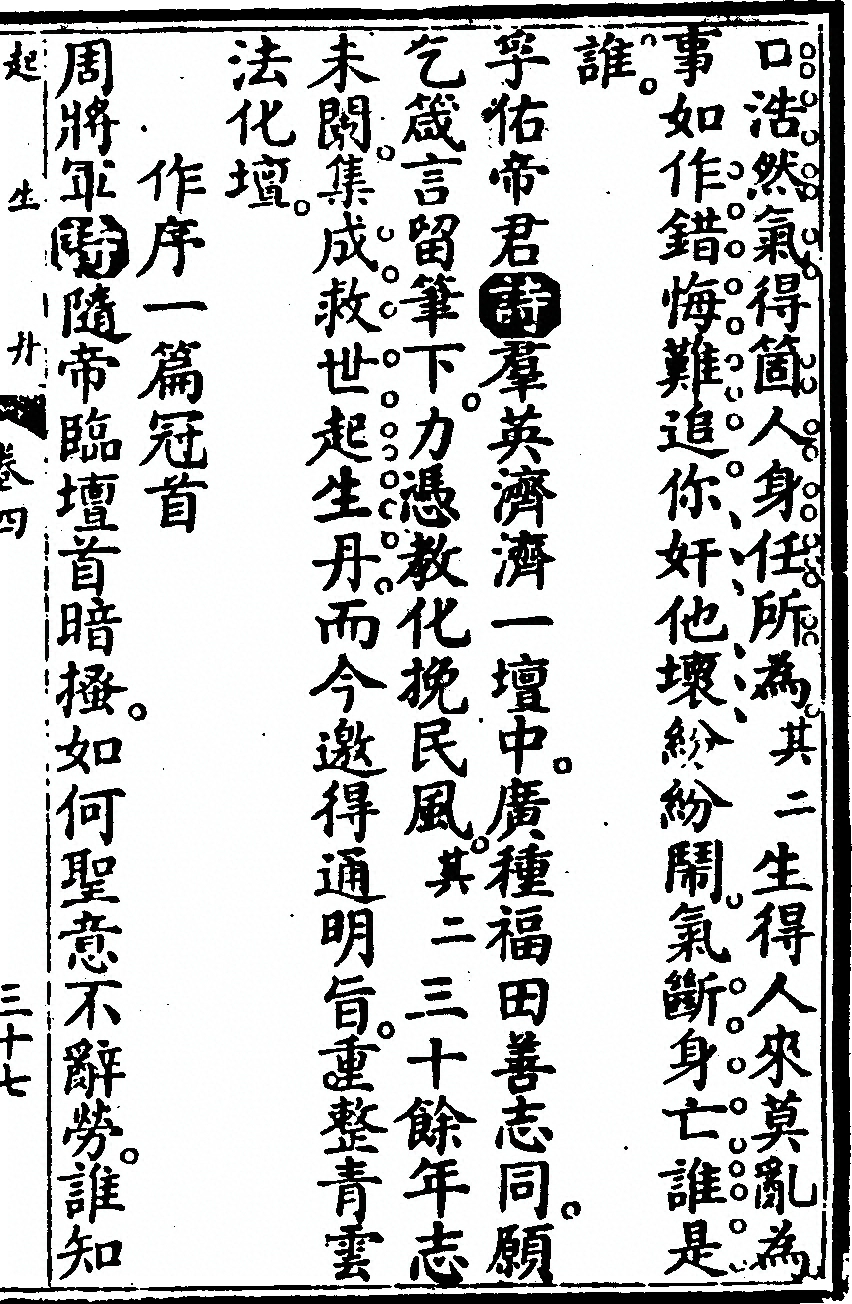 口浩然氣得箇人身任所為其二生得人來莫亂為
事如作錯悔難追你奸他壞紛紛鬧氣斷身亡誰是
誰
孚佑帝君詩羣英濟濟一壇中廣種福田善志同願
乞箴言留筆下力憑教化挽民風其二三十餘年志
未闌集成救世起生丹而今邀得通明旨重整青雲
法化壇
作序一篇冠首
周將軍詩隨帝臨壇首暗搔如何聖意不辭勞誰知
起生丹 卷四 三十七